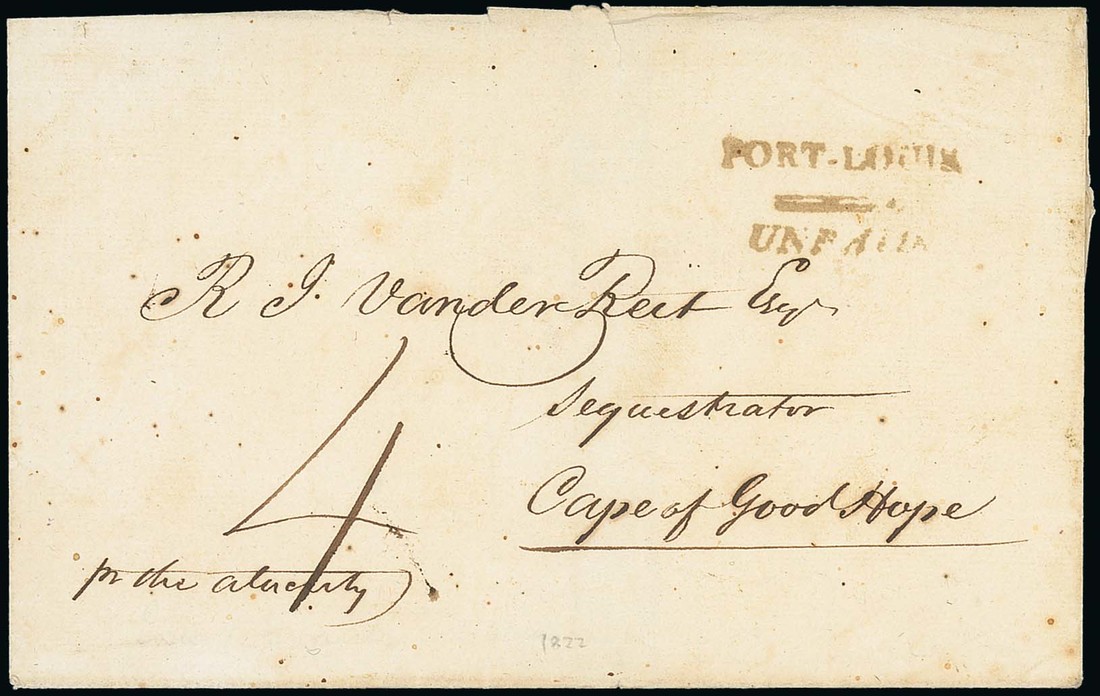 PORT-LOUIS
UNPAID
R J. Vander Reit Esqr
Sequestrator
Cape of Good Hope
4
pr the
1822